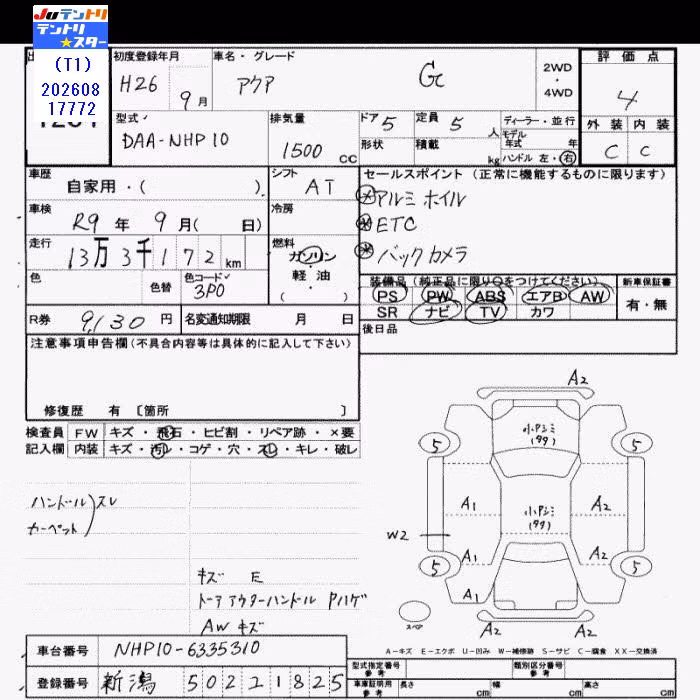 Juテントリ
テントリ
★スター
(T1)
202608
17772
初度登録年月
H26 9月
車名・グレード
アクア G
2WD
・
4WD
評価点
4
外装 内装
C C
型式
DAA-NHP10
排気量
1500 CC
ドア 5
定員 5 人
形状
積載 kg
ディーラー・並行
モデル
年式 年
ハンドル 左・右
車歴
自家用・( )
シフト
AT
セールスポイント(正常に機能するものに限ります)
アルミホイル
ETC
バックカメラ
車検
R9年 9月( 日)
冷房
走行
13万3千172km
燃料
ガソリン
・
軽油
・
( )
色
色替
色コード
3P0
装備品(純正品に限り○をつけてください)
PS PW ABS エアB AW
SR ナビ TV カワ
新車保証書
有・無
R券 9,130 円
名変通知期限 月 日
後日品
注意事項申告欄(不具合内容等は具体的に記入して下さい)
修復歴 有 〔箇所 〕
検査員 FW キズ・飛石・ヒビ割・リペア跡・×要
記入欄 内装 キズ・汚レ・コゲ・穴・スレ・キレ・破レ
ハンドル スレ
カーペット
キズ E
トーアアウターハンドル Pハゲ
AW キズ
A2
小Pシミ
(99)
5 5
A1 A2
小Pシミ
(99)
W2
A1 A2
5 5
A1
A2 A2
スペア
A-キズ E-エクボ U-凹み W-補修跡 S-サビ C-腐食 XX-交換済
車台番号 NHP10-6335310
登録番号 新潟 502 21825
型式指定番号
参考
類別区分番号
参考
車庫証明用
参考
長さ cm
幅 cm
高さ cm